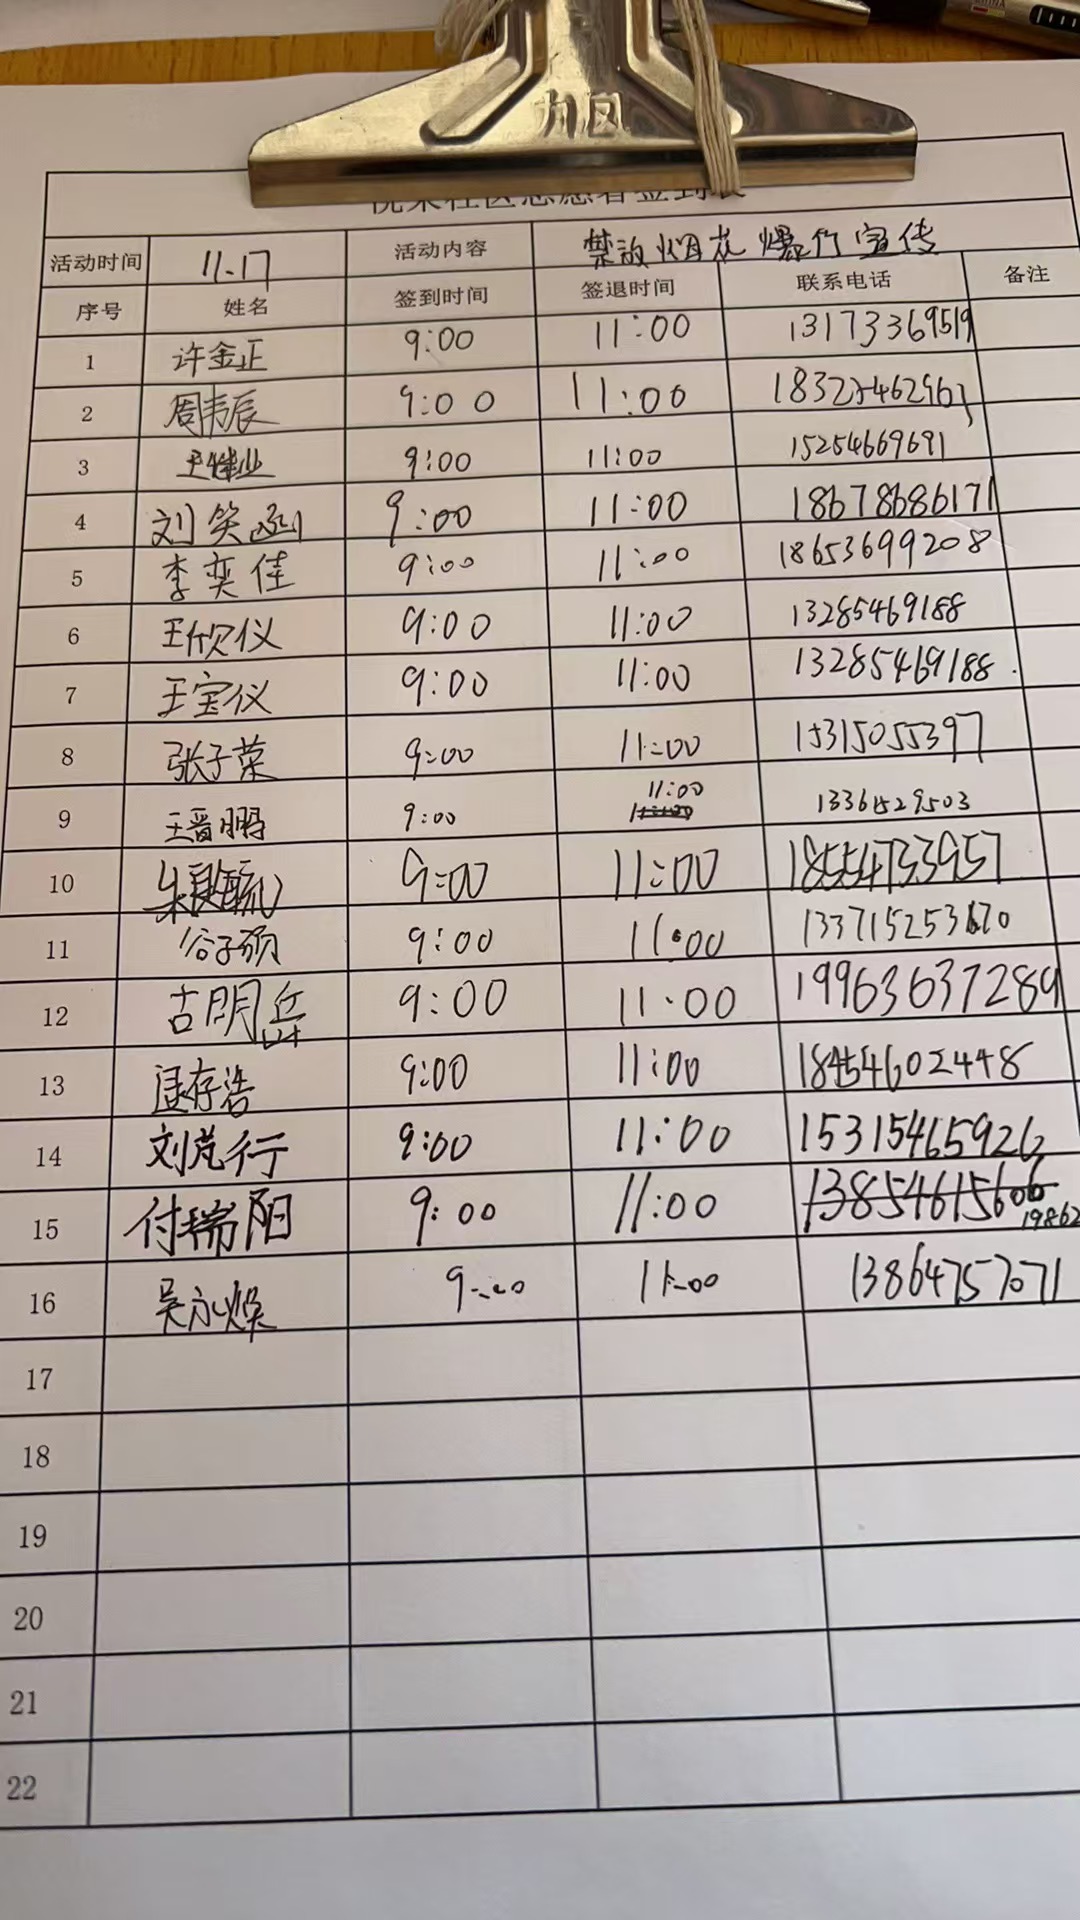 社区志愿者签到表
活动时间 11.17 活动内容 禁放烟花爆竹宣传
序号 姓名 签到时间 签退时间 联系电话 备注
1 许金正 9:00 11:00 13173369519
2 周韦辰 9:00 11:00
3 9:00 11:00 15254669691
4 刘笑函 9:00 11:00 18678686171
5 李奕佳 9:00 11:00 18653699208
6 王欣仪 9:00 11:00 13285469188
7 王宝仪 9:00 11:00 13285469188
8 张子菜 9:00 11:00 15315055397
9 王晋鹏 9:00 11:00
10 9:00 11:00 18554733957
11 谷子硕 9:00 11:00
12 古明岳 9:00 11:00 19963637289
13 存浩 9:00 11:00
14 刘 行 9:00 11:00
15 付瑞阳 9:00 11:00 13854615606
19862
16 吴永焕 9:00 11:00 13864757071
17
18
19
20
21
22